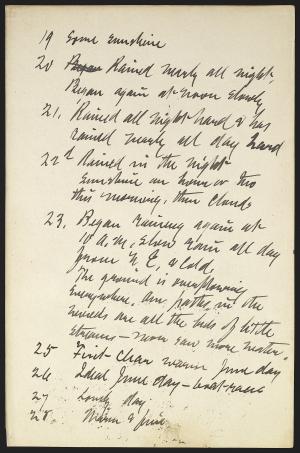 19 Some sunshine
20 Began Rained nearly all night,
Began again at noon slowly
21. Rained all night hard & has
rained nearly all day hard
22d Rained in the night
Sunshine an hour or two
this morning, then clouds
23. Began raining again at
10 A.M. slow rain all day
from N.E., & cold
The ground is overflowing
Everywhere. Our paths in the
woods are all the beds of little
streams — never saw more water.
25 First clear warm June day
26 Ideal June day — boat-race
27 Lovely day
28. Warm & fine